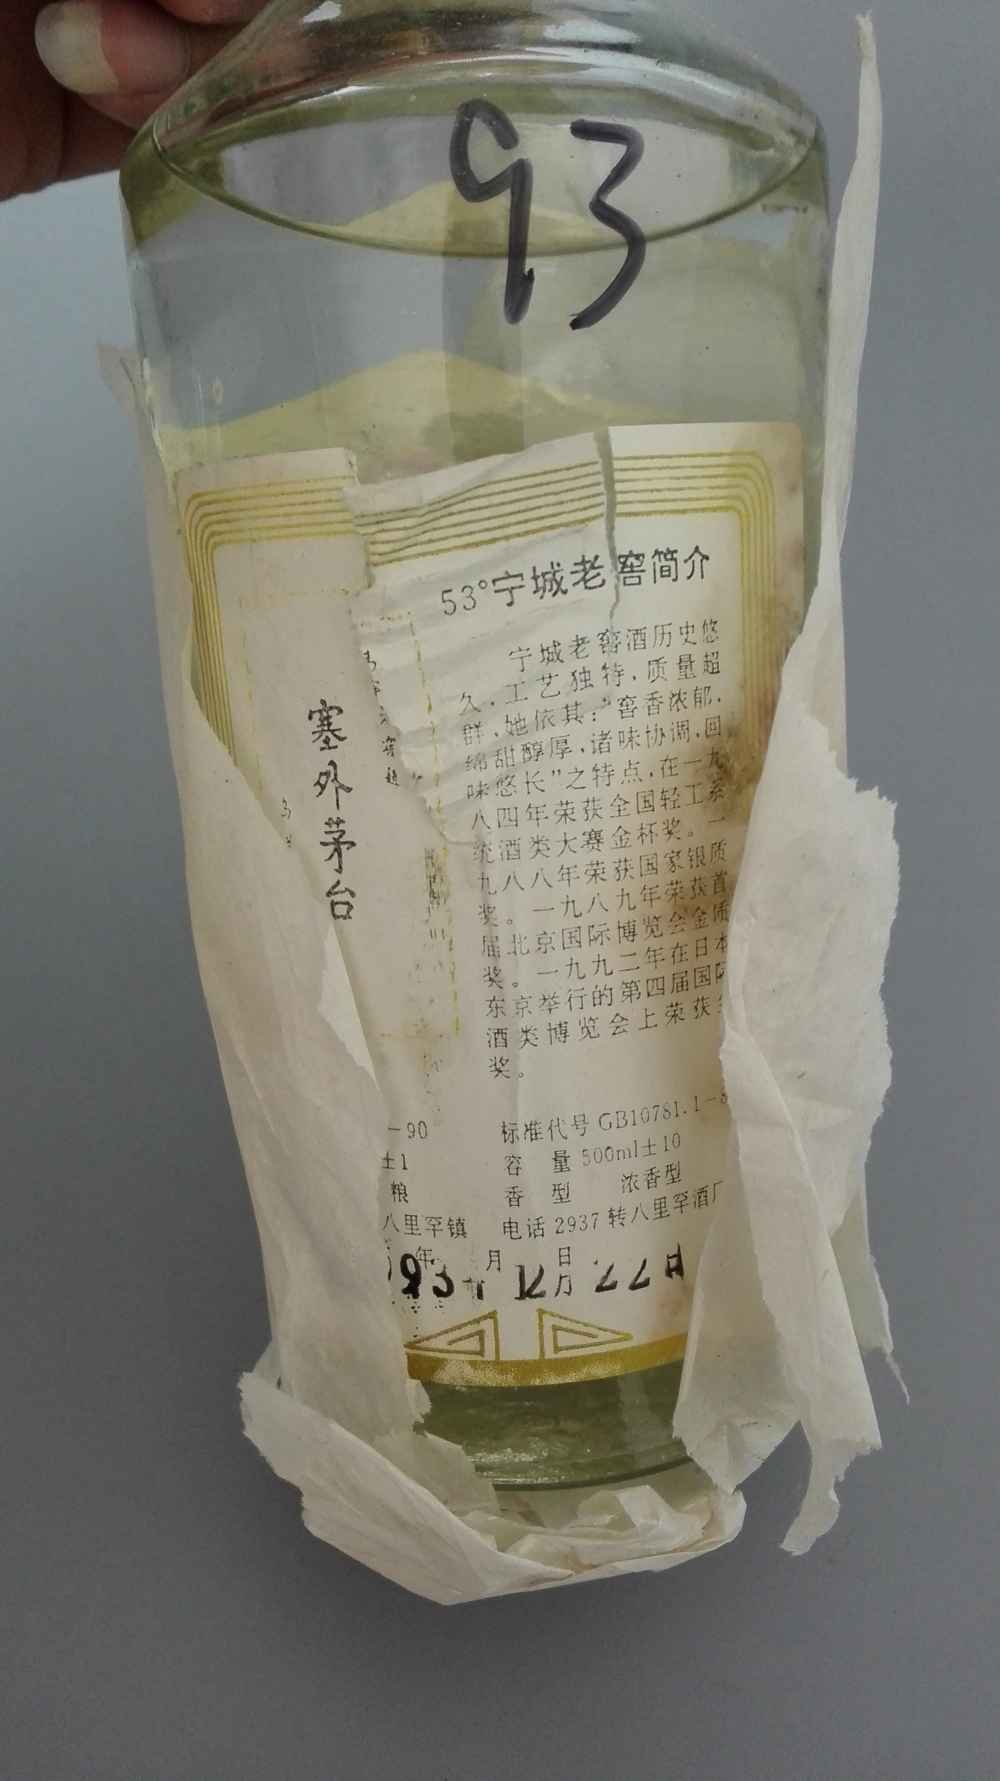 93
53°宁城老窖简介
宁城老窖酒历史悠
久，工艺独特，质量超
群，她依其：“窖香浓郁，
绵甜醇厚，诸味协调，回
味悠长”之特点，在一九
八四年荣获全国轻工系
统酒类大赛金杯奖。一
九八八年荣获国家银质
奖。一九八九年荣获首
届北京国际博览会金质
奖。一九九二年在日本
东京举行的第四届国际
酒类博览会上荣获
奖。
塞外茅台
-90
±1
粮
八里罕镇
标准代号 GB10781.1-8
容 量 500ml±10
香 型 浓香型
电话 2937 转八里罕酒厂
年 月 日